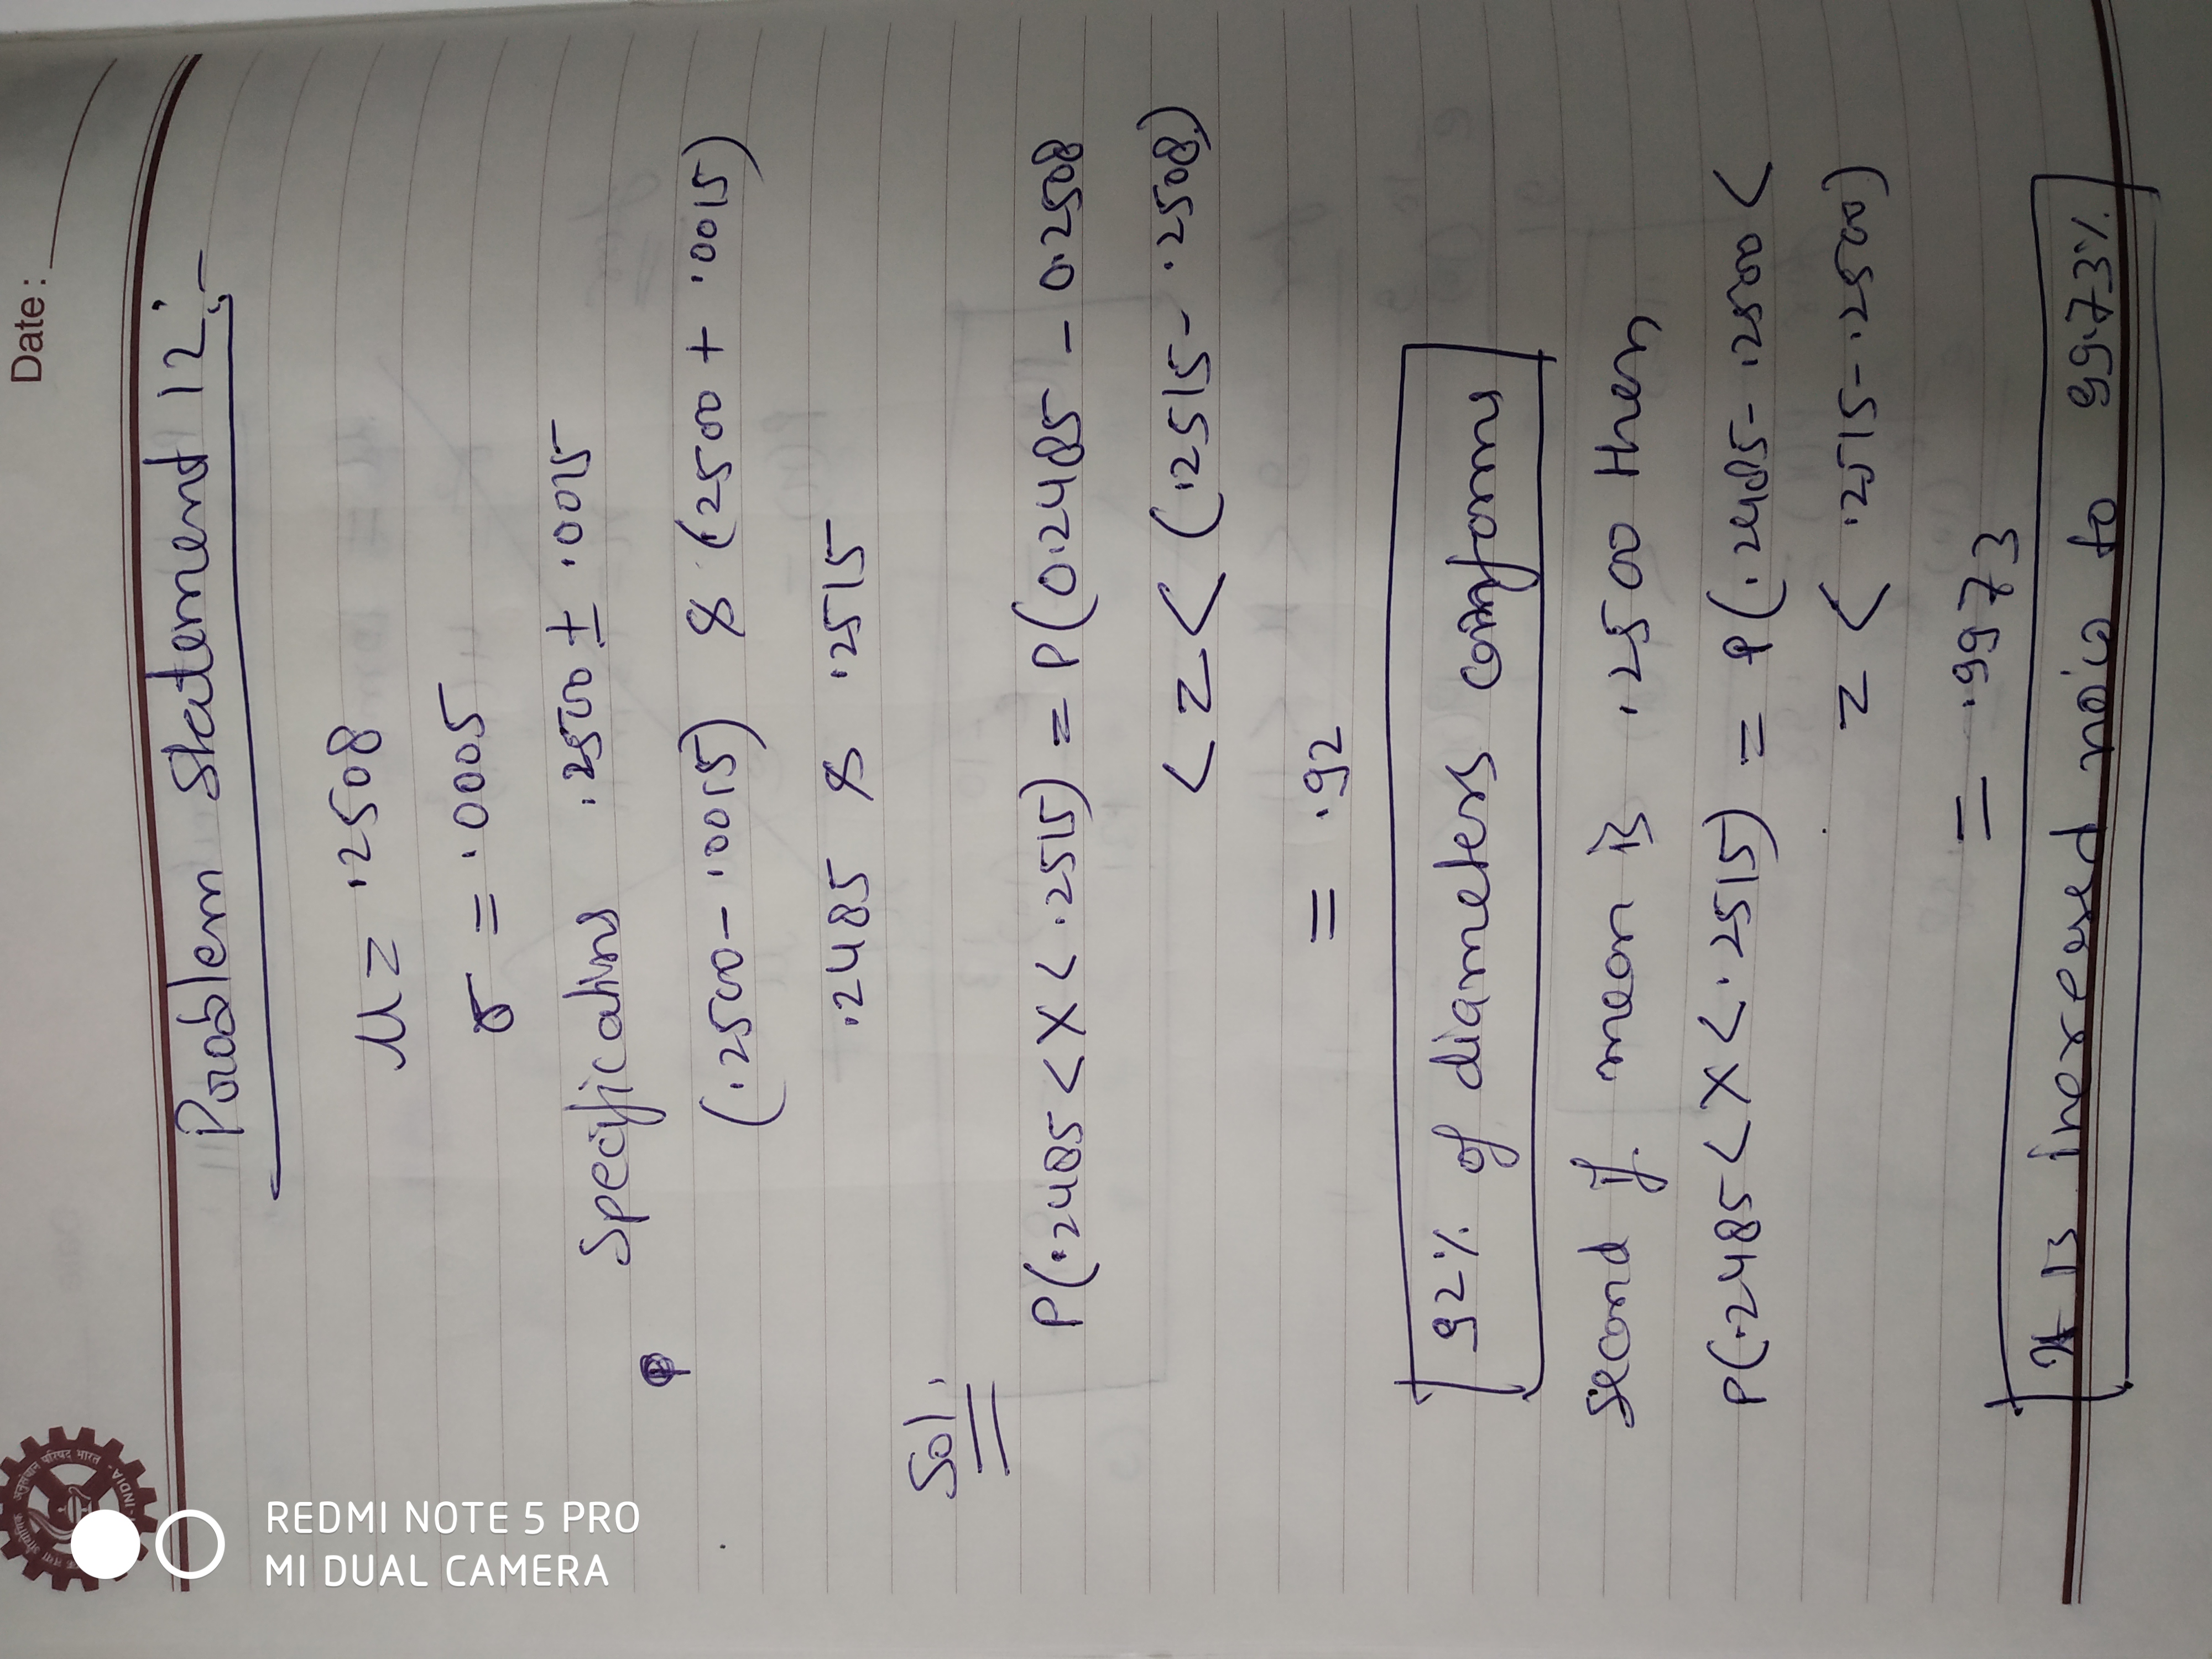 Date:
Problem Statement 12:-
μ = .2508
σ = .0005
Specifications .2500 ± .0015
(.2500 - .0015) & (2500 + .0015)
.2485 & .2515
Sol.
P(.2485 < X < .2515) = P(0.2485 - 0.2508
< Z < (.2515 - .2508)
= .92
92% of diameters conforms
Second if mean is .2500 then
P(.2485 < X < .2515) = P(.2485 - .2500 <
Z < .2515 - .2500)
= .9973
It is increased now to 99.73%
REDMI NOTE 5 PRO
MI DUAL CAMERA